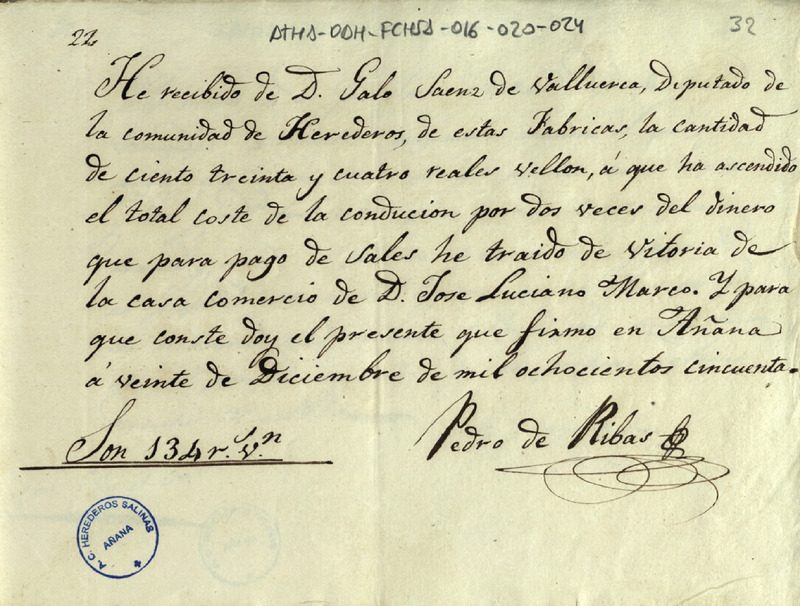 22
ATHA-DAH-FCHSA-016-020-024
32
He recibido de D. Galo Saenz de Valluerca, Deputado de
la comunidad de Herederos, de estas Fabricas, la cantidad
de ciento treinta y cuatro reales vellon, á que ha ascendido
el total coste de la conducion por dos veces del dinero
que para pago de sales he traido de Vitoria de
la casa comercio de D. Jose Luciano Marco. Y para
que conste doy el presente que firmo en Añana
á veinte de Diciembre de mil ochocientos cincuenta.
Pedro de Ribas
Son 134 r.s v.n
A. C. HEREDEROS SALINAS
AÑANA